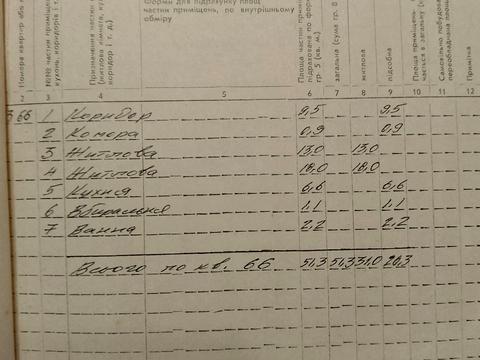 Номера квартир або
№№ частин
кухонь, коридорів і т.
Призначення частин
(житлова кімната, кух
коридор і т. д.)
Формули для підрахунку площ
частин приміщень, по внутрішньому
обміру
Площа частин приміщ
підрахована по форм
гр. 5 (кв. м.)
загальна (сума гр. 8
житлова
підсобна
Площа приміщень
чається в загальну
Самовільно побудова
переобладнана площа
Примітка
2 3 4 5 6 7 8 9 10 11 12
66 1 Коридор 9,5 9,5
2 Комора 0,9 0,9
3 Житлова 13,0 13,0
4 Житлова 18,0 18,0
5 Кухня 6,6 6,6
6 Вбиральня 1,1 1,1
7 Ванна 2,2 2,2
Всього по кв. 66 51,3 51,3 31,0 20,3